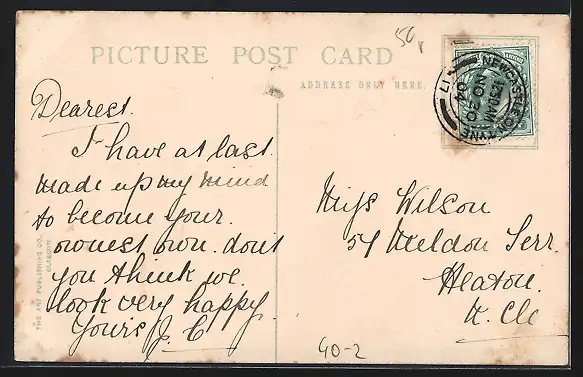 PICTURE POST CARD
ADDRESS ONLY HERE.
Dearest.
I have at last
made up my mind
to become your
ownest own. don't
you think we
look very happy.
Yours J. C.
THE ART PUBLISHING CO.
GLASGOW
NEWCASTLE ON TYNE
12.50 AM
NO 30
04
Miss Wilson
54 Meldon Terr.
Heaton.
N. Cle
40-2